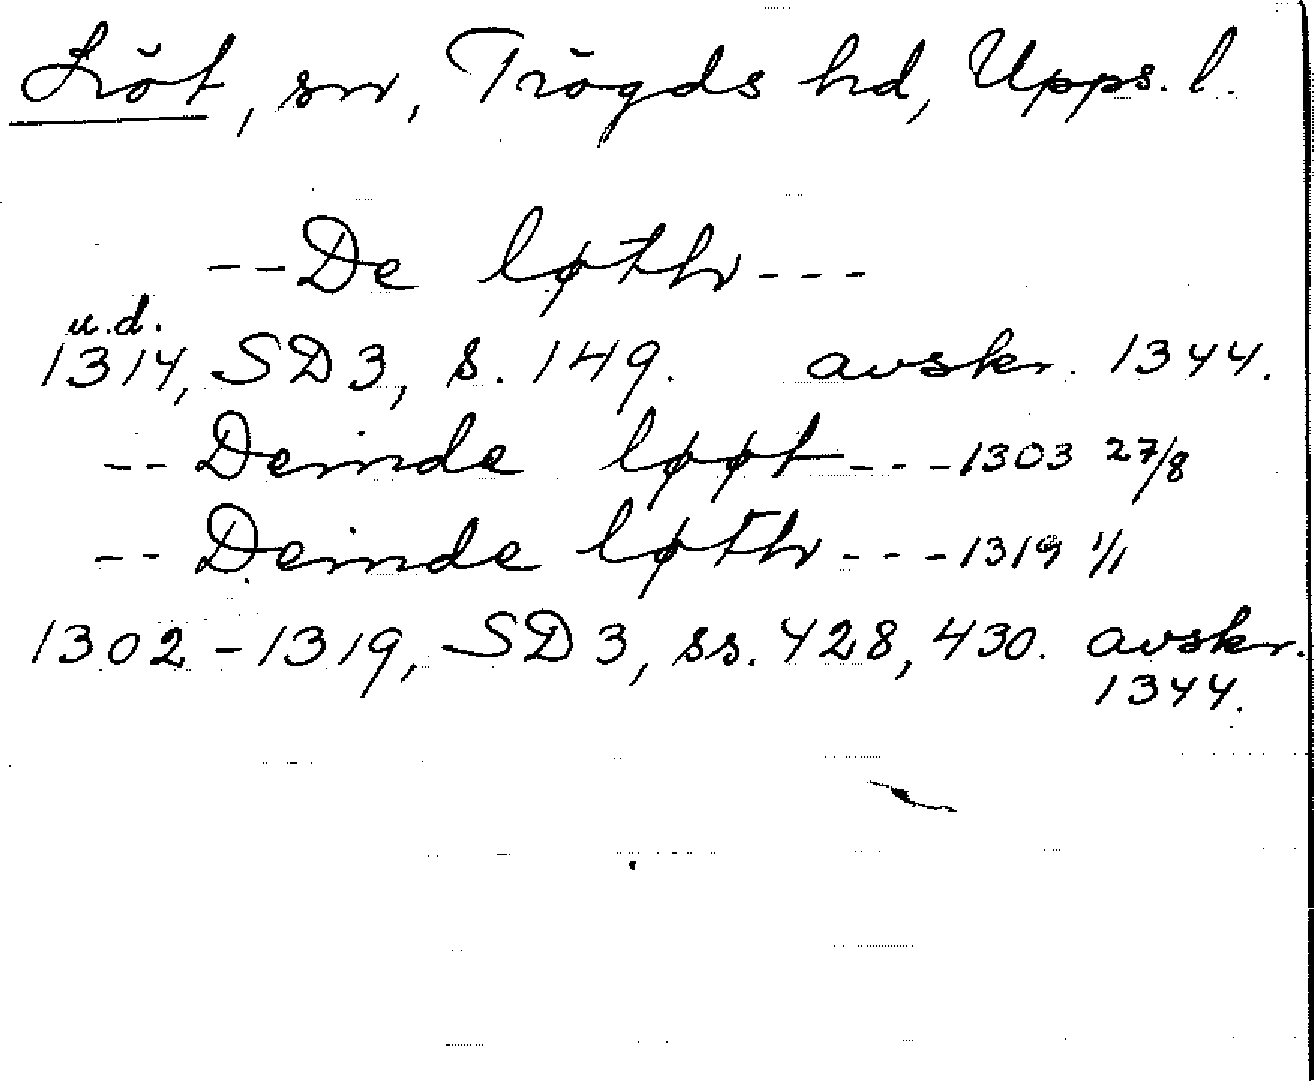 Löt, sn, Trögds hd, Upps. l.
--De løth---
u.d.
1314, SD3, s. 149. avskr. 1344.
--Deinde løøt---1303 27/8
--Deinde løth---1319 1/1
1302-1319, SD3, ss. 428, 430. avskr.
1344.